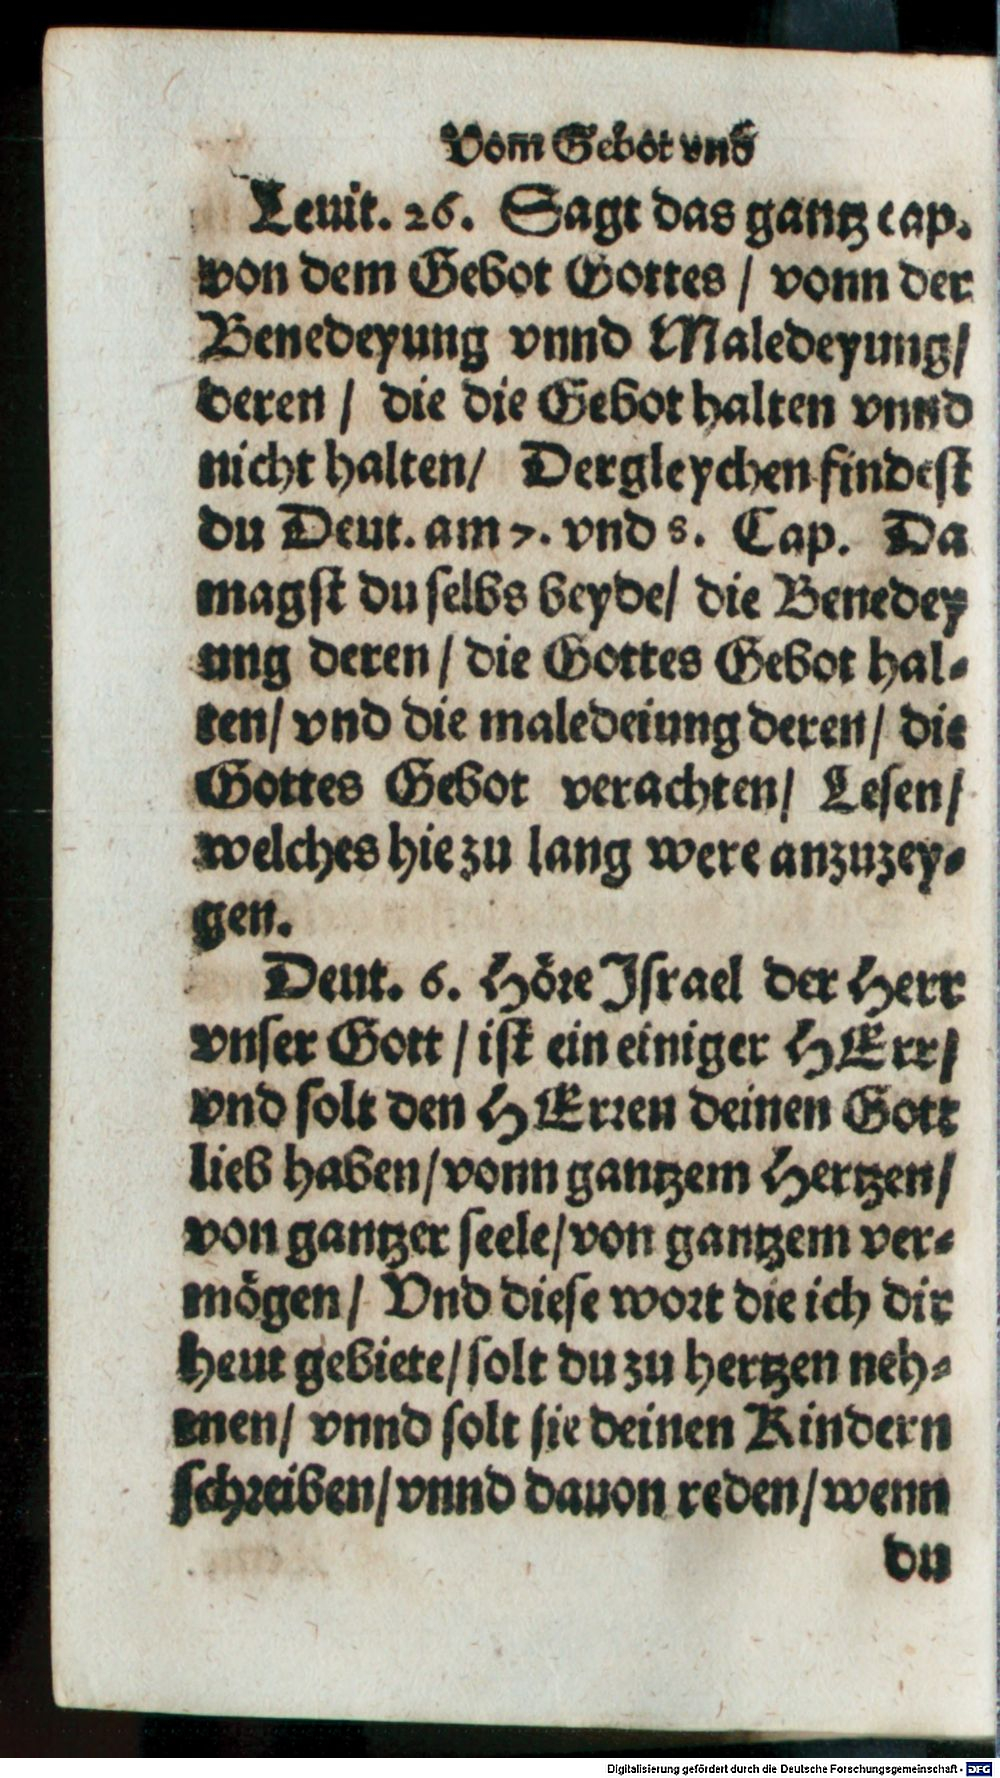 Vom̄ Gebot vnd
Leuit. 26. Sagt das gantz cap.
von dem Gebot Gottes / vonn der
Benedeyung vnnd Maledeyung/
deren / die die Gebot halten vnnd
nicht halten/ Dergleychen findest
du Deut. am 7. vnd 8. Cap. Da
magst du selbs beyde/ die Benedey
ung deren / die Gottes Gebot hal⸗
ten/ vnd die maledeiung deren/ die
Gottes Gebot verachten/ Lesen/
welches hie zu lang were anzuzey⸗
gen.
Deut. 6. Höre Israel der Herr
vnser Gott / ist ein einiger HErr/
vnd solt den HErren deinen Gott
lieb haben/ vonn gantzem Hertzen/
von gantzer seele/ von gantzem ver⸗
mögen/ Vnd diese wort die ich dir
heut gebiete/ solt du zu hertzen neh⸗
men/ vnnd solt sie deinen Kindern
schreiben/ vnnd dauon reden/ wenn
du
Digitalisierung gefördert durch die Deutsche Forschungsgemeinschaft - DFG